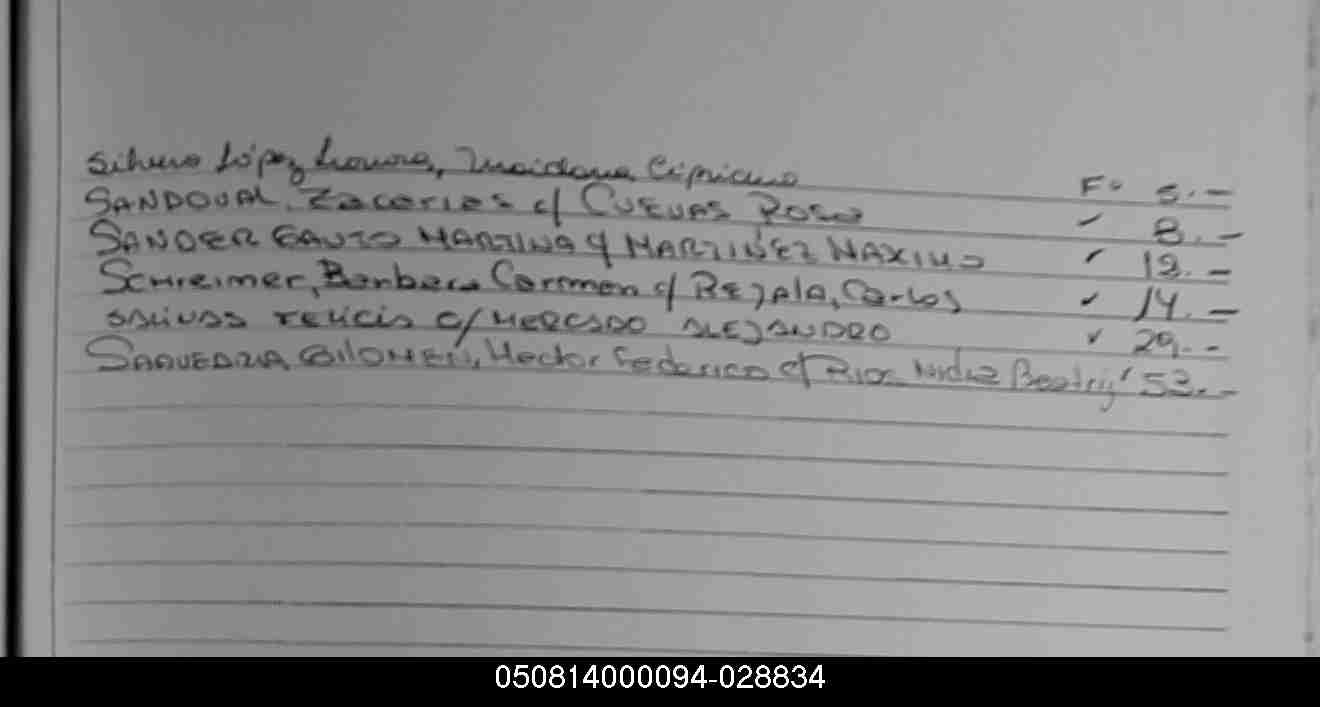 Silvero López Leonora, Maidana Cipriano Fº 5.-
SANDOVAL, Zacarias c/ CUEVAS ROSA " 8.-
SANDER GAUTO MARTINA c/ MARTINEZ MAXIMO " 12.-
Schreimer, Barbara Carmen c/ BEJALA, Carlos " 14.-
SALINAS FELICIA c/ MERCADO ALEJANDRO " 29.-
SAAVEDRA Hector Federico c/ Rios Beatriz " 53.-
050814000094-028834